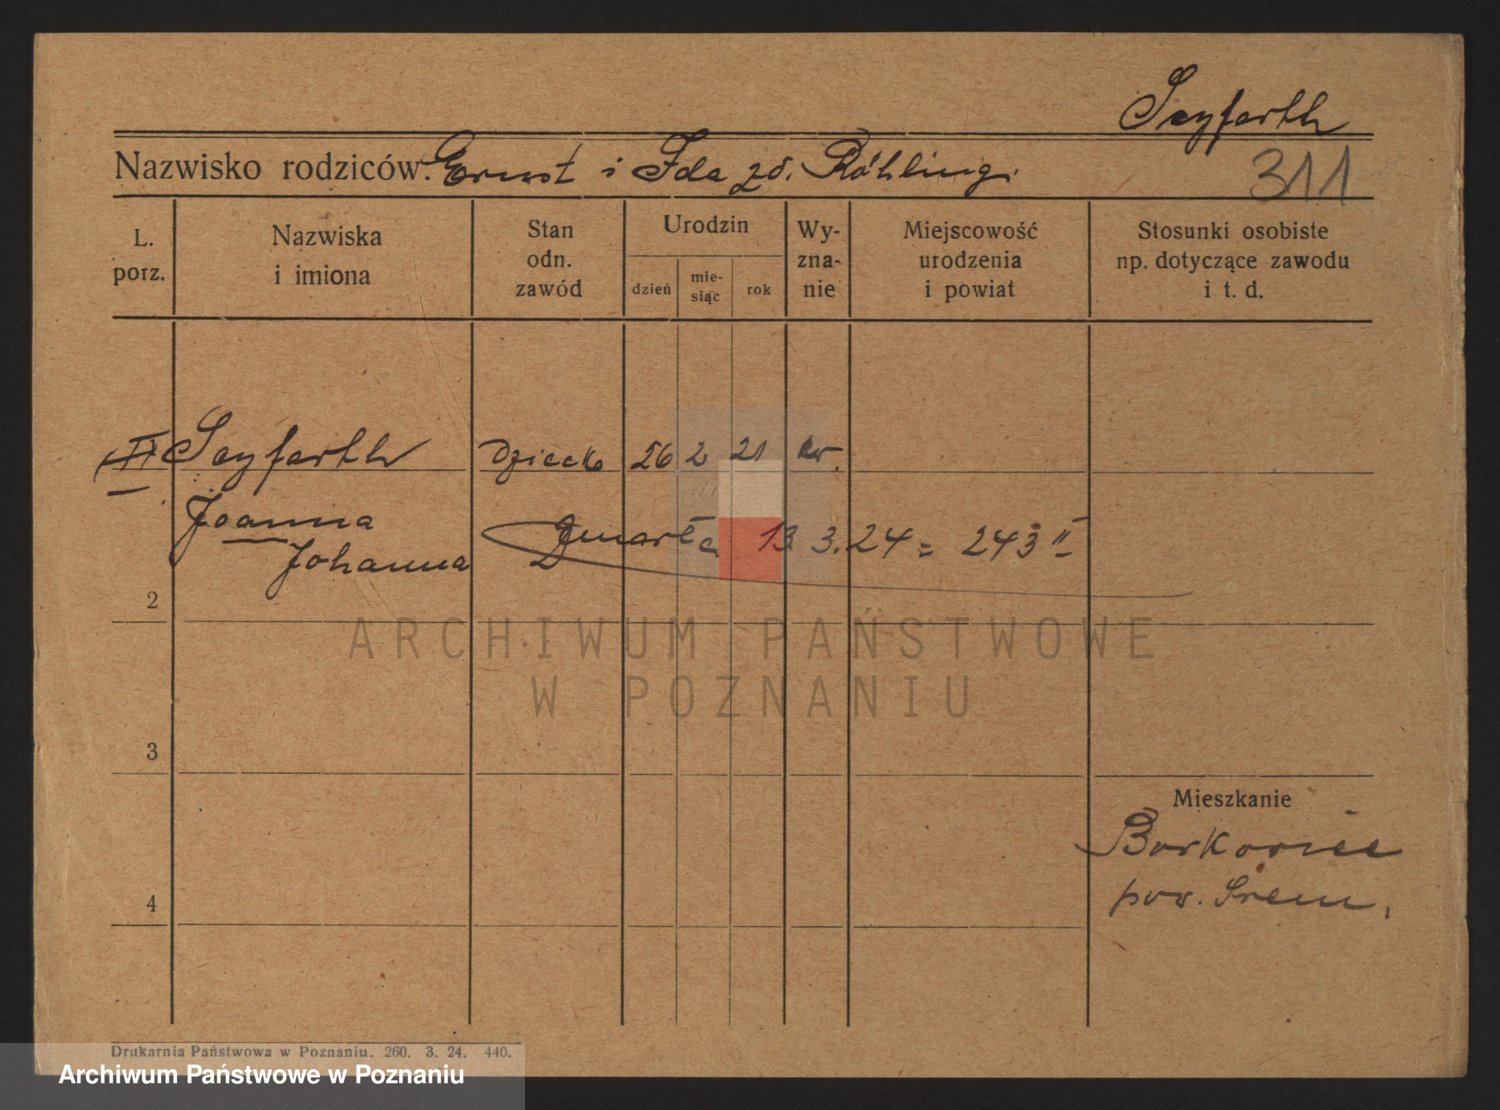 Seyfarth
Nazwisko rodziców: Ernst i Ida zd. Röhling.
311
L. porz.
Nazwiska i imiona
Stan odn. zawód
Urodzin
dzień
mie-siąc
rok
Wy-zna-nie
Miejscowość urodzenia i powiat
Stosunki osobiste np. dotyczące zawodu i t. d.
II Seyfarth Dziecko 26 2 21 ew.
Joanna
Johanna
Zmarła 13.3.24 = 243 II
2
ARCHIWUM PAŃSTWOWE
W POZNANIU
3
Mieszkanie
Borkowice
pow. Śrem.
4
Drukarnia Państwowa w Poznaniu. 260. 3. 24. 440.
Archiwum Państwowe w Poznaniu